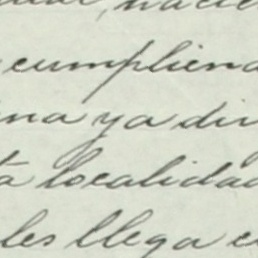 cumpliend
na ya din
a localidad
les llega e